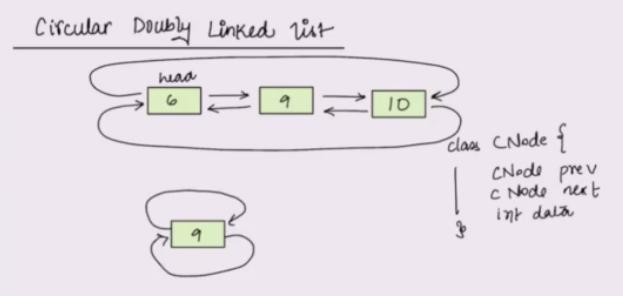 Circular Doubly Linked list
head
6
9
10
class CNode {
CNode prev
CNode next
int data
}
9